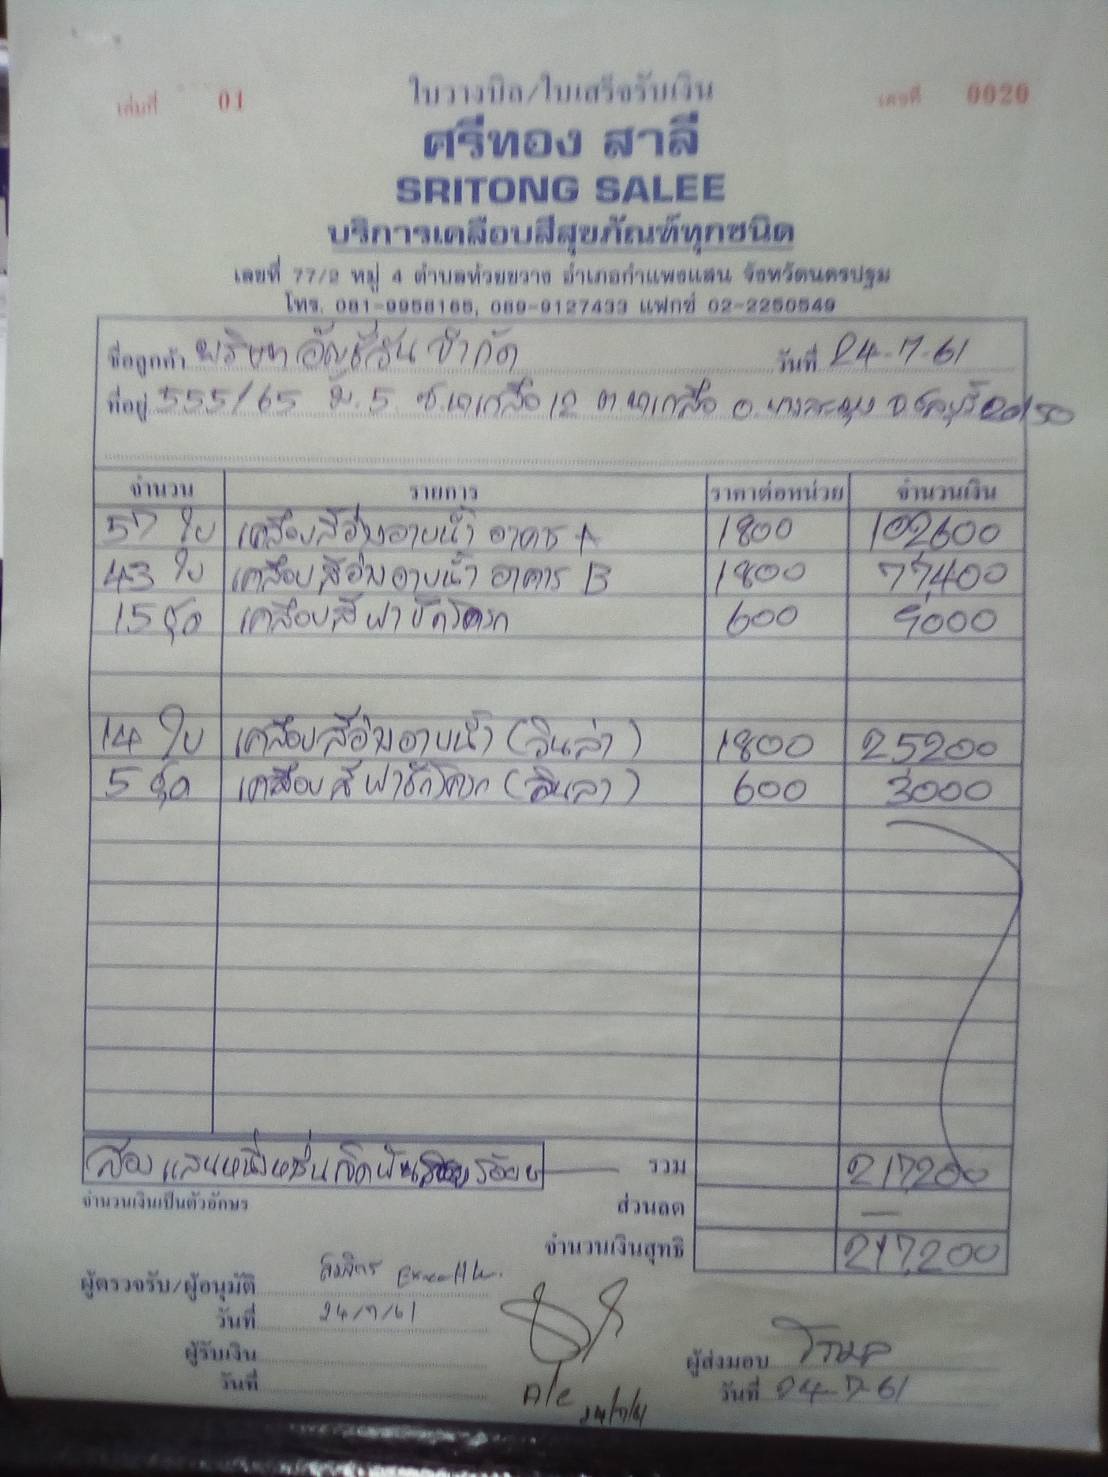 เล่มที่ 01 ใบวางบิล/ใบเสร็จรับเงิน เลขที่ 0020
ศรีทอง สาลี
SRITONG SALEE
บริการเคลือบสีสุขภัณฑ์ทุกชนิด
เลขที่ 77/2 หมู่ 4 ตำบลห้วยขวาง อำเภอกำแพงแสน จังหวัดนครปฐม
โทร. 081-9958165, 089-9127433 แฟกซ์ 02-2250549
ชื่อลูกค้า บริษัท อัญชัญ จำกัด วันที่ 24-7-61
ที่อยู่ 555/65 ม.5 ซ.นาเกลือ 12 ต.นาเกลือ อ.บางละมุง จ.ชลบุรี 20150
จำนวน รายการ ราคาต่อหน่วย จำนวนเงิน
57 ใบ เคลือบสีอ่างอาบน้ำ อาคาร A 1800 102600
43 ใบ เคลือบสีอ่างอาบน้ำ อาคาร B 1800 77400
15 ชุด เคลือบสีฝาชักโครก 600 9000
14 ใบ เคลือบสีอ่างอาบน้ำ (วินล่า) 1800 25200
5 ชุด เคลือบสีฝาชักโครก (วินล่า) 600 3000
สองแสนหนึ่งหมื่นเจ็ดพันสองร้อย รวม 217,200
จำนวนเงินเป็นตัวอักษร ส่วนลด —
จำนวนเงินสุทธิ 217,200
ผู้ตรวจรับ/ผู้อนุมัติ
วันที่ 24/7/61
ผู้รับเงิน ผู้ส่งมอบ
วันที่ A/c 24/7/61 วันที่ 24-7-61